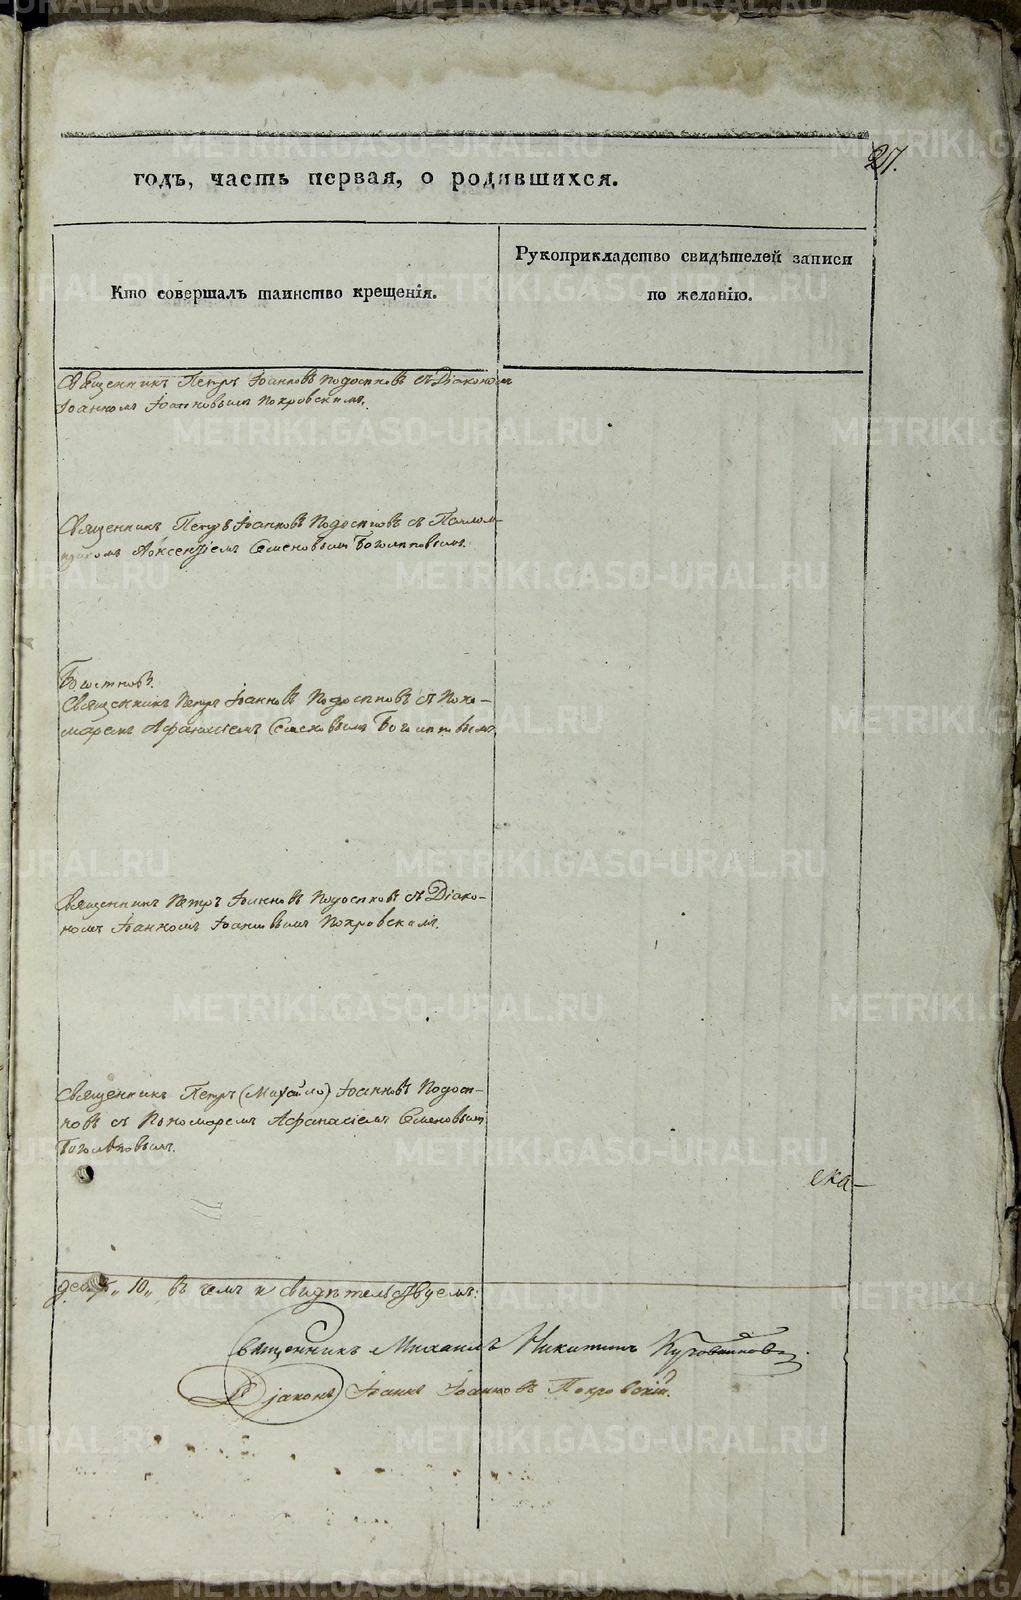 27.
годъ, часть первая, о родившихся.
Кто совершалъ таинство крещенія.
Рукоприкладство свидѣтелей записи
по желанію.
Священникъ Петръ Іоанновъ Подосеновъ съ Діакономъ
Іоанномъ Іоанновымъ Покровскимъ.
Священникъ Петръ Іоанновъ Подосеновъ съ
Авксентіемъ Семеновымъ
Священникъ Петръ Іоанновъ Подосеновъ съ Поно-
маремъ Афанасіемъ Семеновымъ
Священникъ Петръ Іоанновъ Подосеновъ съ Діако-
номъ Іоанномъ Іоанновымъ Покровскимъ.
Священникъ Петръ (Михайло) Іоанновъ Подосе-
новъ съ Пономаремъ Афанасіемъ Семеновымъ
ека-
10„ въ чемъ и свидѣтельствуемъ:
Священникъ Михаилъ Никитинъ
Діаконъ Іоаннъ Іоанновъ Покровскій.
METRIKI.GASO-URAL.RU